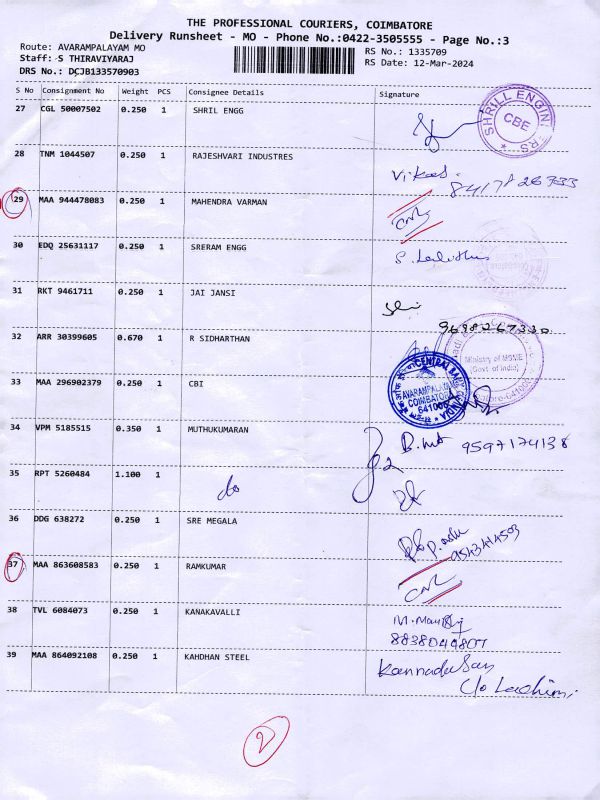 THE PROFESSIONAL COURIERS, COIMBATORE
Delivery Runsheet - MO - Phone No.:0422-3505555 - Page No.:3
Route: AVARAMPALAYAM MO
RS No.: 1335709
Staff: S THIRAVIYARAJ
RS Date: 12-Mar-2024
DRS No.: DCJB133570903
S No Consignment No Weight PCS Consignee Details Signature
27 CGL 50007502 0.250 1 SHRIL ENGG
SHRILL ENGINEERS
CBE
28 TNM 1044507 0.250 1 RAJESHVARI INDUSTRES
Vikas.
29 MAA 944478083 0.250 1 MAHENDRA VARMAN
30 EDQ 25631117 0.250 1 SRERAM ENGG
31 RKT 9461711 0.250 1 JAI JANSI
9698267330
32 ARR 30399605 0.670 1 R SIDHARTHAN
Ministry of MSME
(Govt. of India)
33 MAA 296902379 0.250 1 CBI
CENTRAL BANK
INDIA
AVARAMPALAYAM
COIMBATORE
641006
34 VPM 5185515 0.350 1 MUTHUKUMARAN
9597174138
35 RPT 5260484 1.100 1
do
36 DDG 638272 0.250 1 SRE MEGALA
37 MAA 863608583 0.250 1 RAMKUMAR
38 TVL 6084073 0.250 1 KANAKAVALLI
8838049807
39 MAA 864092108 0.250 1 KAHDHAN STEEL
Kannadasan
c/o
2